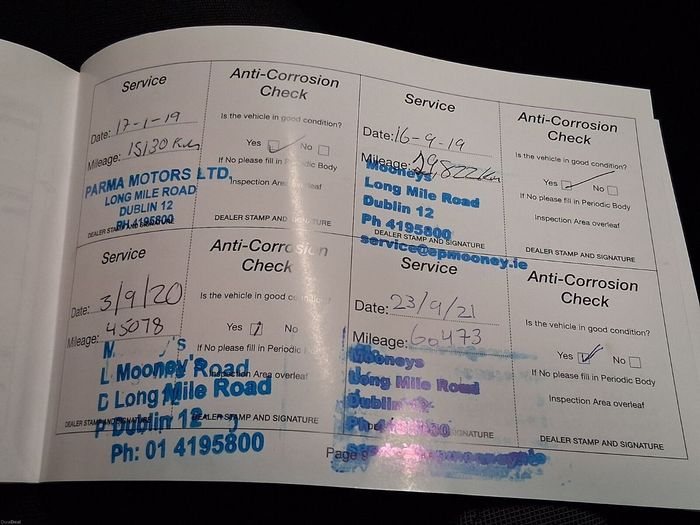 Service
Date: 17-1-19
Mileage: 15130 Km
PARMA MOTORS LTD,
LONG MILE ROAD
DUBLIN 12
PH 4195800
DEALER STAMP AND SIGNATURE
Anti-Corrosion
Check
Is the vehicle in good condition?
Yes No
If No please fill in Periodic Body
Inspection Area overleaf
DEALER STAMP AND SIGNATURE
Service
Date: 16-9-19
Mileage: 29,822 Km
Mooneys
Long Mile Road
Dublin 12
Ph 4195800
DEALER STAMP AND SIGNATURE
service@epmooney.ie
Anti-Corrosion
Check
Is the vehicle in good condition?
Yes No
If No please fill in Periodic Body
Inspection Area overleaf
DEALER STAMP AND SIGNATURE
Service
Date: 3/9/20
Mileage: 45078
Mooney's
Long Mile Road
Dublin 12
Ph: 01 4195800
DEALER STAMP AND SIGNATURE
Anti-Corrosion
Check
Is the vehicle in good condition?
Yes No
If No please fill in Periodic
Inspection Area overleaf
DEALER STAMP AND SIGNATURE
Service
Date: 23/9/21
Mileage: 60473
Mooneys
Long Mile Road
Dublin
SIGNATURE
Anti-Corrosion
Check
Is the vehicle in good condition?
Yes No
If No please fill in Periodic Body
Inspection Area overleaf
DEALER STAMP AND SIGNATURE
Page
DoneDeal